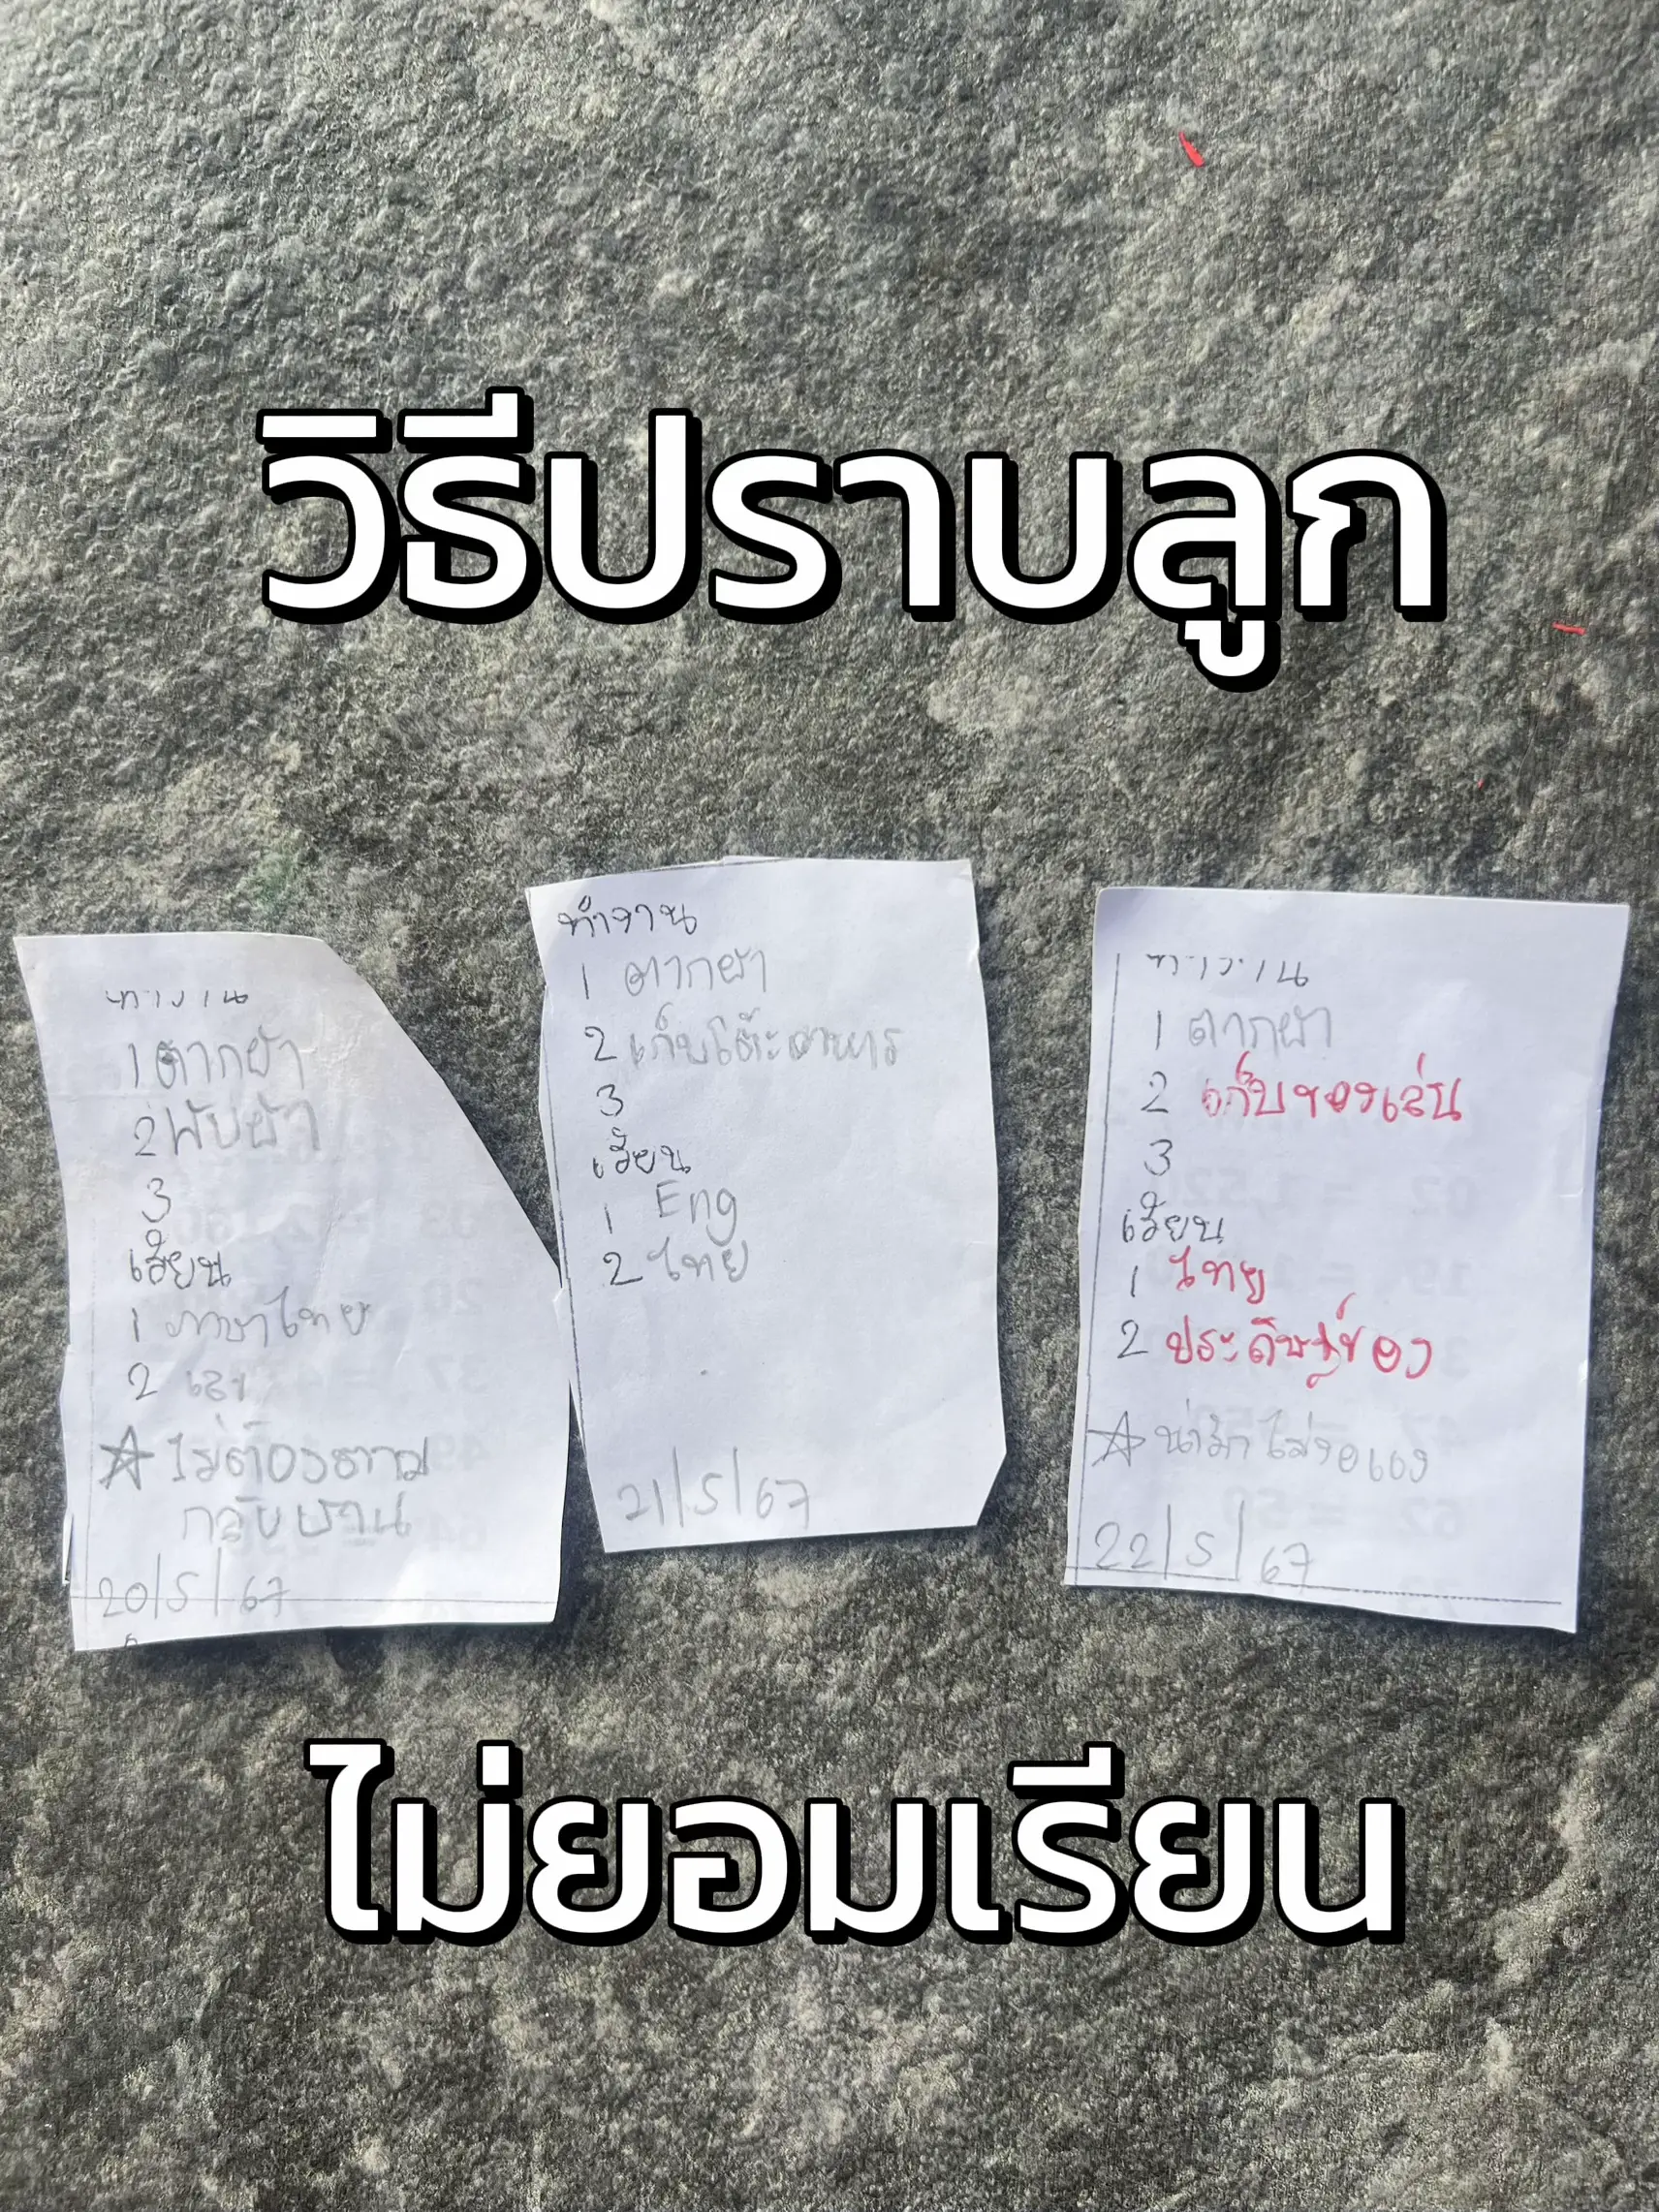 วิธีปราบลูก
ทำงาน
1 ตากผ้า
2 พับผ้า
3
เรียน
1 ภาษาไทย
2 เลข
☆ ไม่ต้องตาม
กลับบ้าน
20/5/67
ทำงาน
1 ตากผ้า
2 เก็บโต๊ะอาหาร
3
เรียน
1 Eng
2 ไทย
21/5/67
ทำงาน
1 ตากผ้า
2 เก็บของเล่น
3
เรียน
1 ไทย
2 ประดิษฐ์ของ
☆ ไม่งอแง
22/5/67
ไม่ยอมเรียน